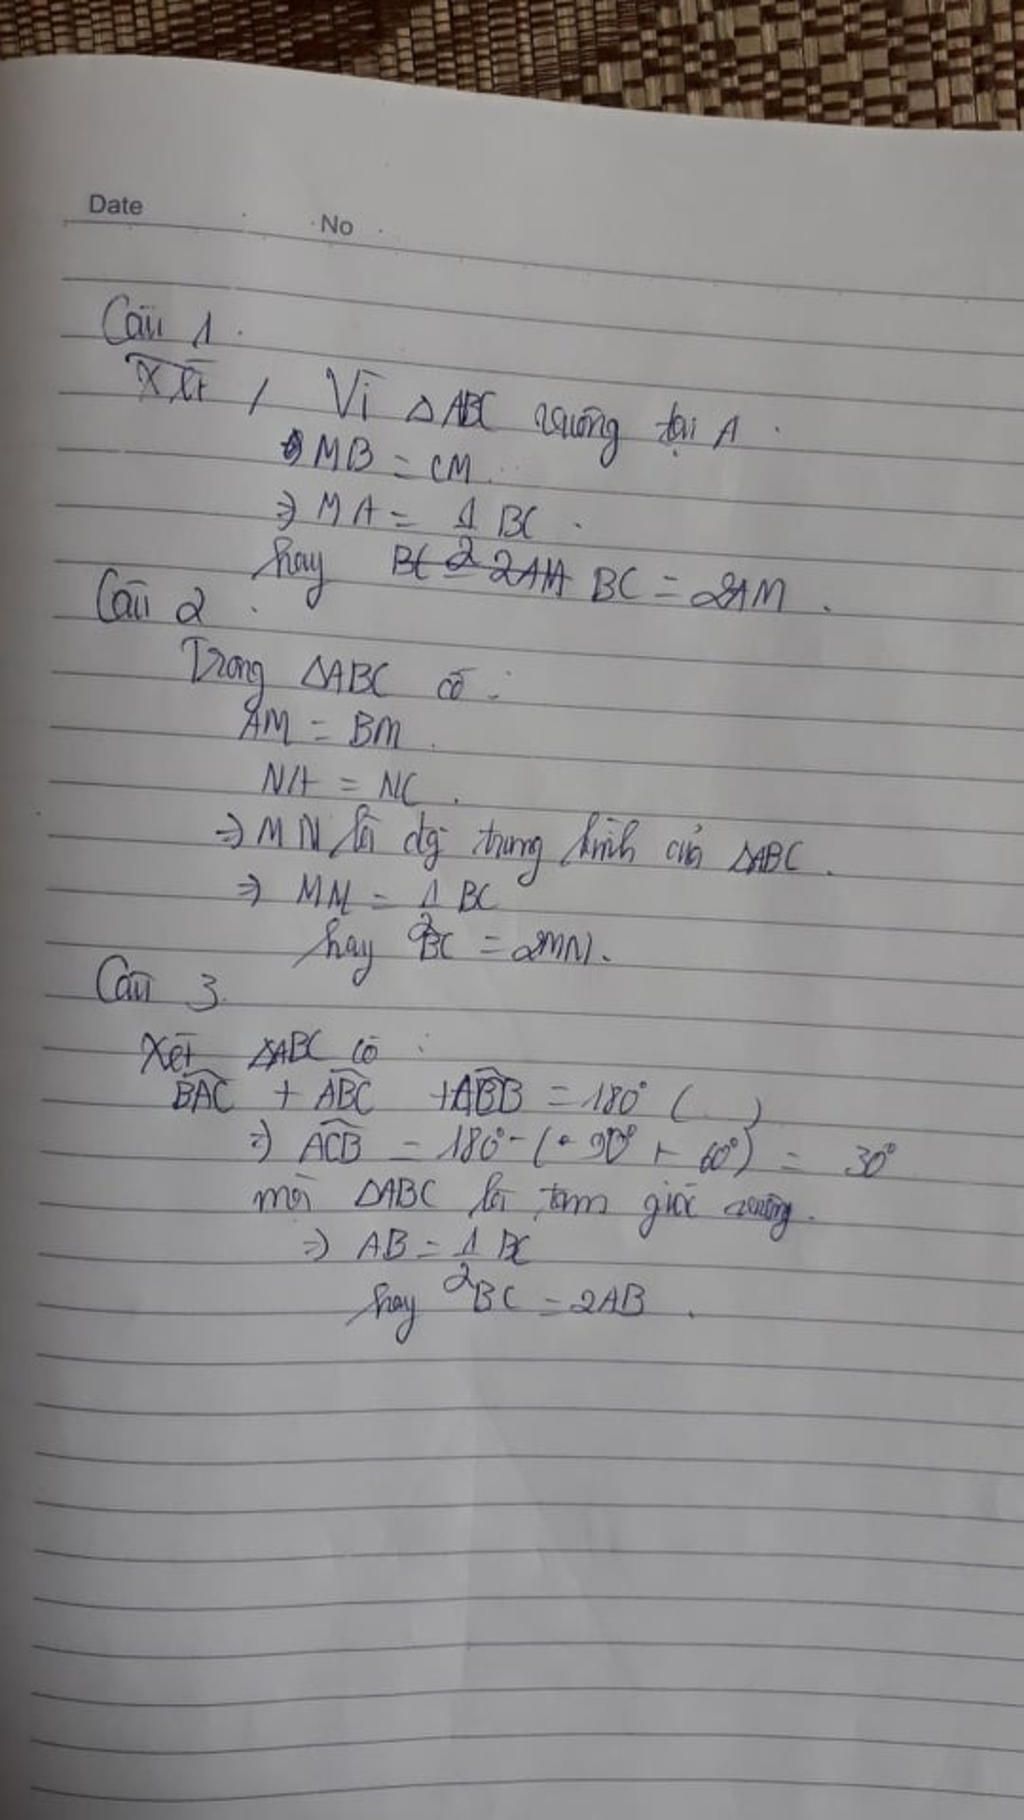 Date No
Câu 1.
Xét, Vì ΔABC vuông tại A.
MB = CM.
⇒ MA = 1/2 BC.
hay BC = 2AM BC = 2AM.
Câu 2
Trong ΔABC có:
AM = BM.
NA = NC.
⇒ MN là đg trung bình của ΔABC.
⇒ MM = 1/2 BC
hay BC = 2MN.
Câu 3.
Xét ΔABC có:
BAC + ABC + = 180° ( )
⇒ ACB = 180° - ( 90° + 60°) = 30°
mà ΔABC là tam giác vuông.
⇒ AB = 1/2 BC
hay BC = 2AB.